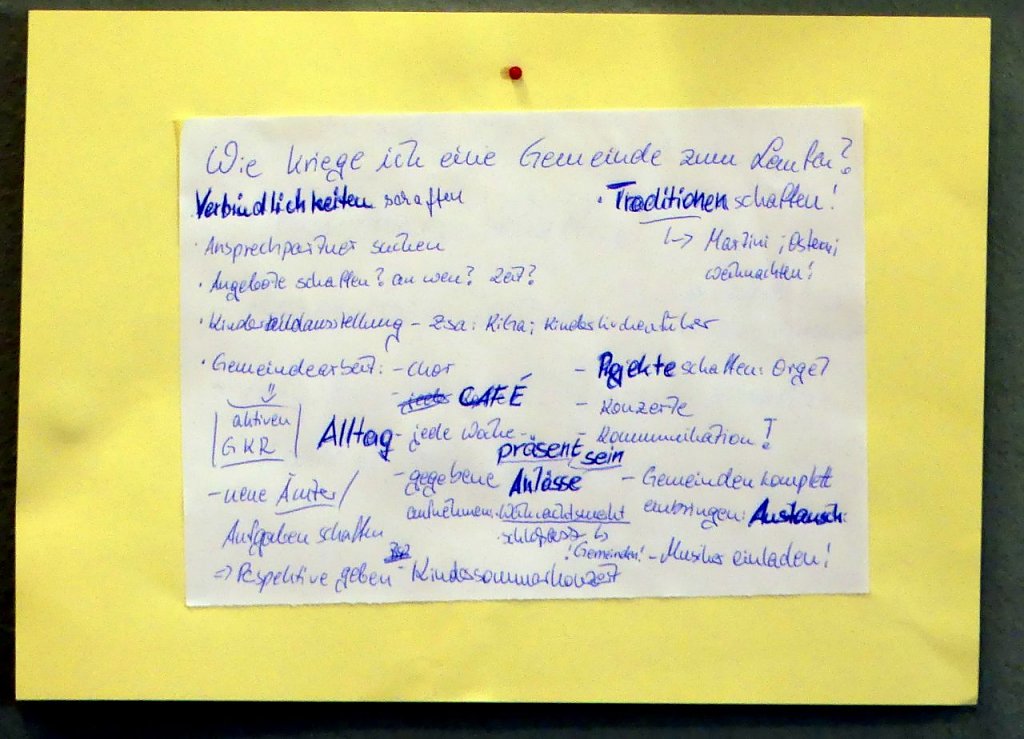 Wie kriege ich eine Gemeinde zum Laufen?
Verbindlichkeiten schaffen
· Traditionen schaffen!
↳ Martini; Ostern;
Weihnachten!
· Ansprechpartner suchen
· Angebote schaffen? an wen? Zeit?
· Kinderbildausstellung - Kita; Kinderkirchenführer
· Gemeindearbeit: - Chor
- CAFÉ
Alltag - jede Woche -
präsent sein
- gegebene Anlässe
aufnehmen: Weihnachtsmarkt
! Gemeinden!
- Projekte schaffen: Orgel
- Konzerte
- Kommunikation!
- Gemeinden komplett
einbringen: Austausch
- Musiker einladen!
aktiven
GKR
- neue Ämter/
Aufgaben schaffen
=> Perspektive geben - Kindersommerkonzert